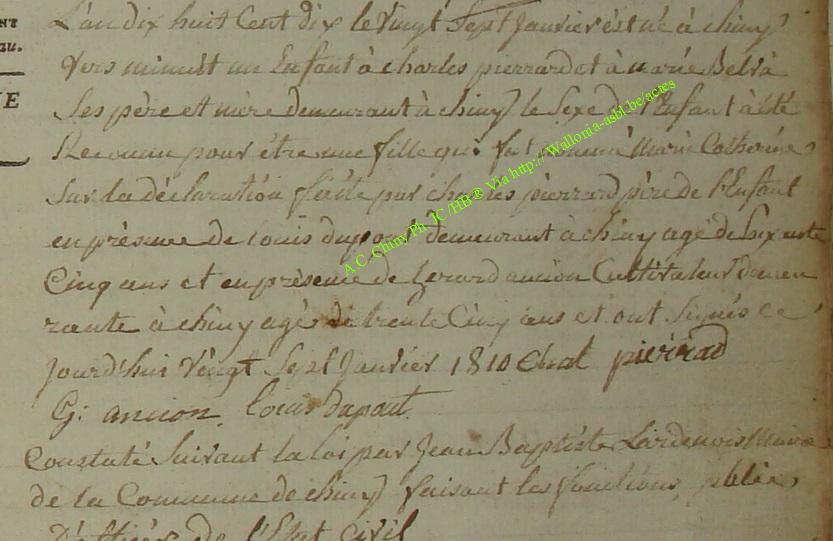 L'an dix huit Cent dix le vingt Sept Janvier est né à chiny
vers minuit un Enfant à charles pierrard et à marie Belvà
Ses père et mère demeurant à chiny le Sexe de l'Enfant à été
Reconnu pour être une fille qui fut nommé Marie Catherine
Sur la déclaration faite par charles pierrard père de l'Enfant
en présence de louis dupont demeurant à chiny agé de Soixante
Cinq ans et en présence de Gerard ancion Cultivateur demeu
rante à chiny agé de trente Cinq ans et ont Signés ce
Jourd'hui vingt Sept Janvier 1810 pierrard
G: ancion louis dupont
Constaté Suivant la loi par Jean Baptiste Lardenois Maire
de la Commune de chiny faisant les fonctions
D'officier de l'Etat Civil
A.C. Chiny Ph. JC /HB® Via http://Wallonia-asbl.be/actes
NT
au.
E